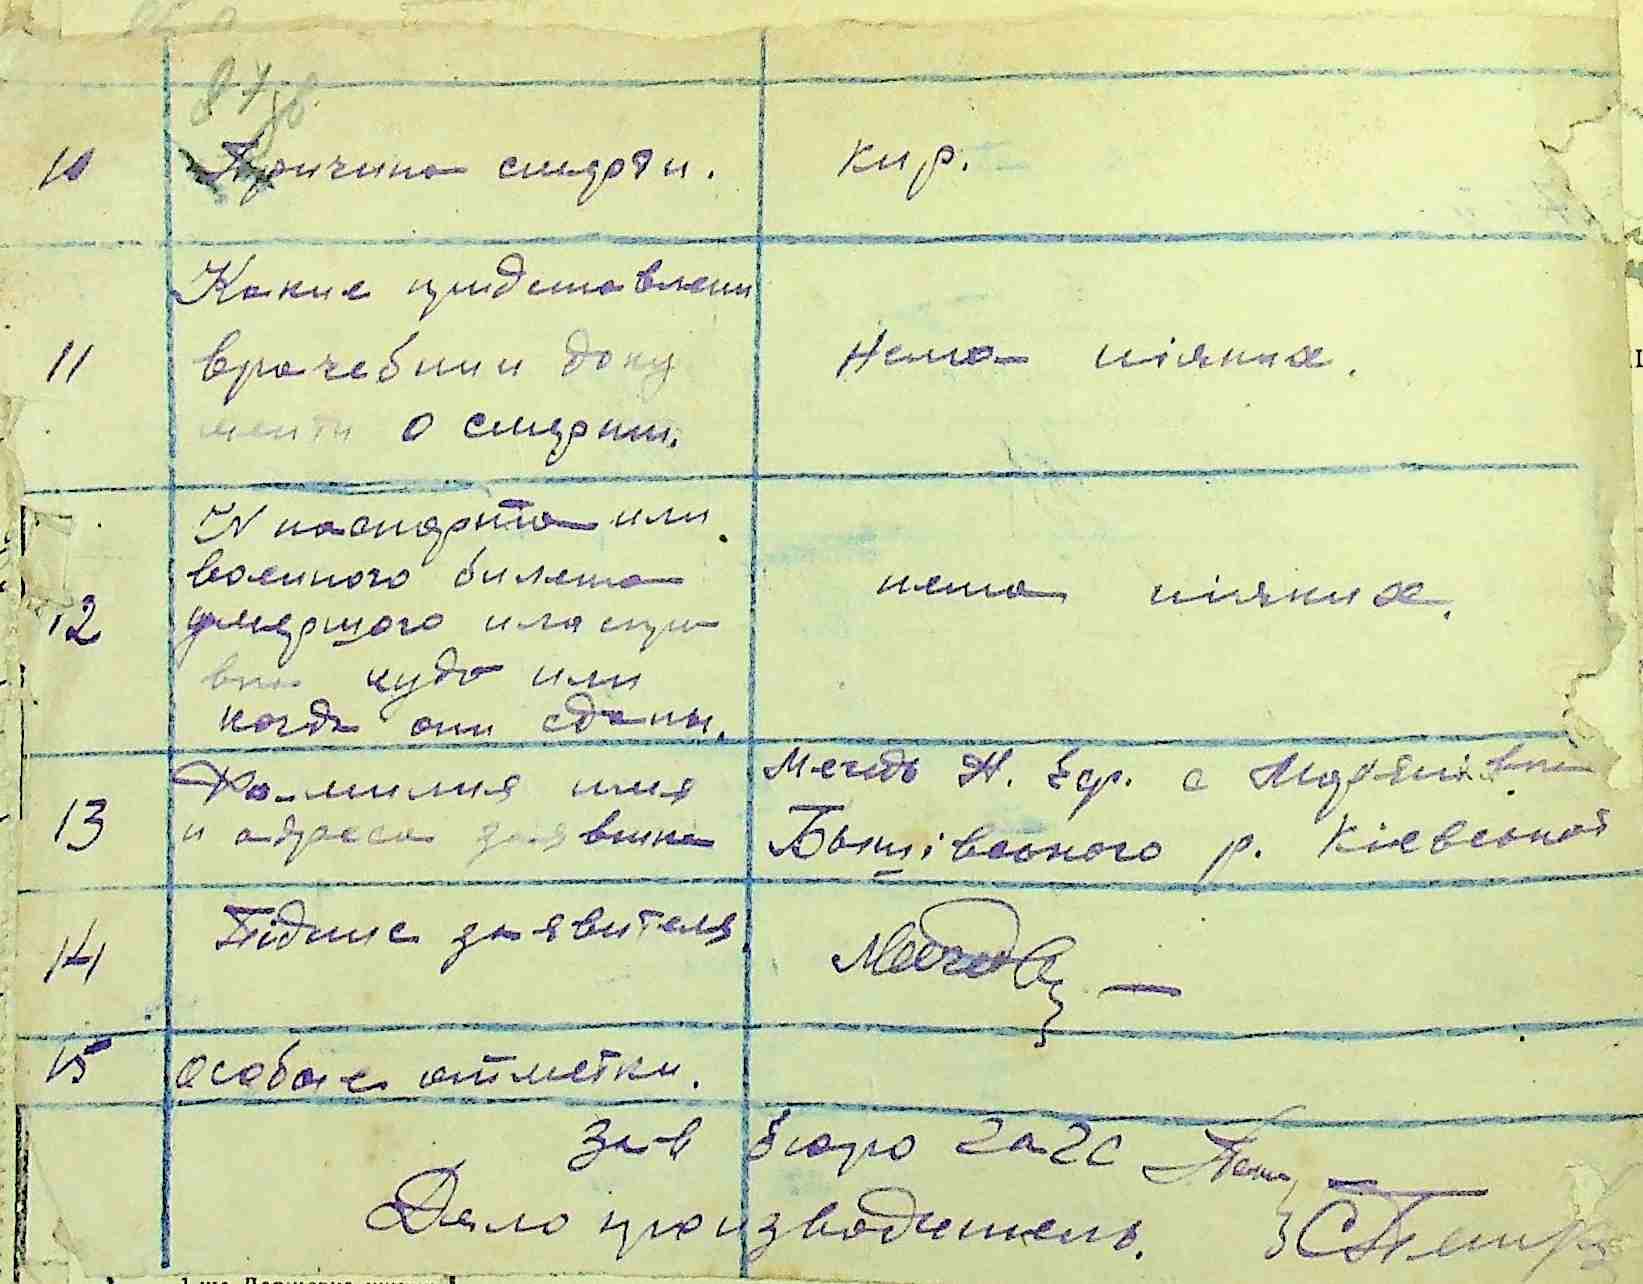 87 зв.
10 Причина смерти. кир.
11 Какие придставлени
врачебнии доку
менти о смерти.
Нема ніяких.
12 N паспорта или
военного билета
умершого или
куда или
когда они сданы.
нема ніяких.
13 Фамилия имя
и адреса заявника
Н. Еф. с
р. Київської
14 Підпис заявителя.
15 Особые отметки.
Зав бюро Загс
Делопроизводитель.